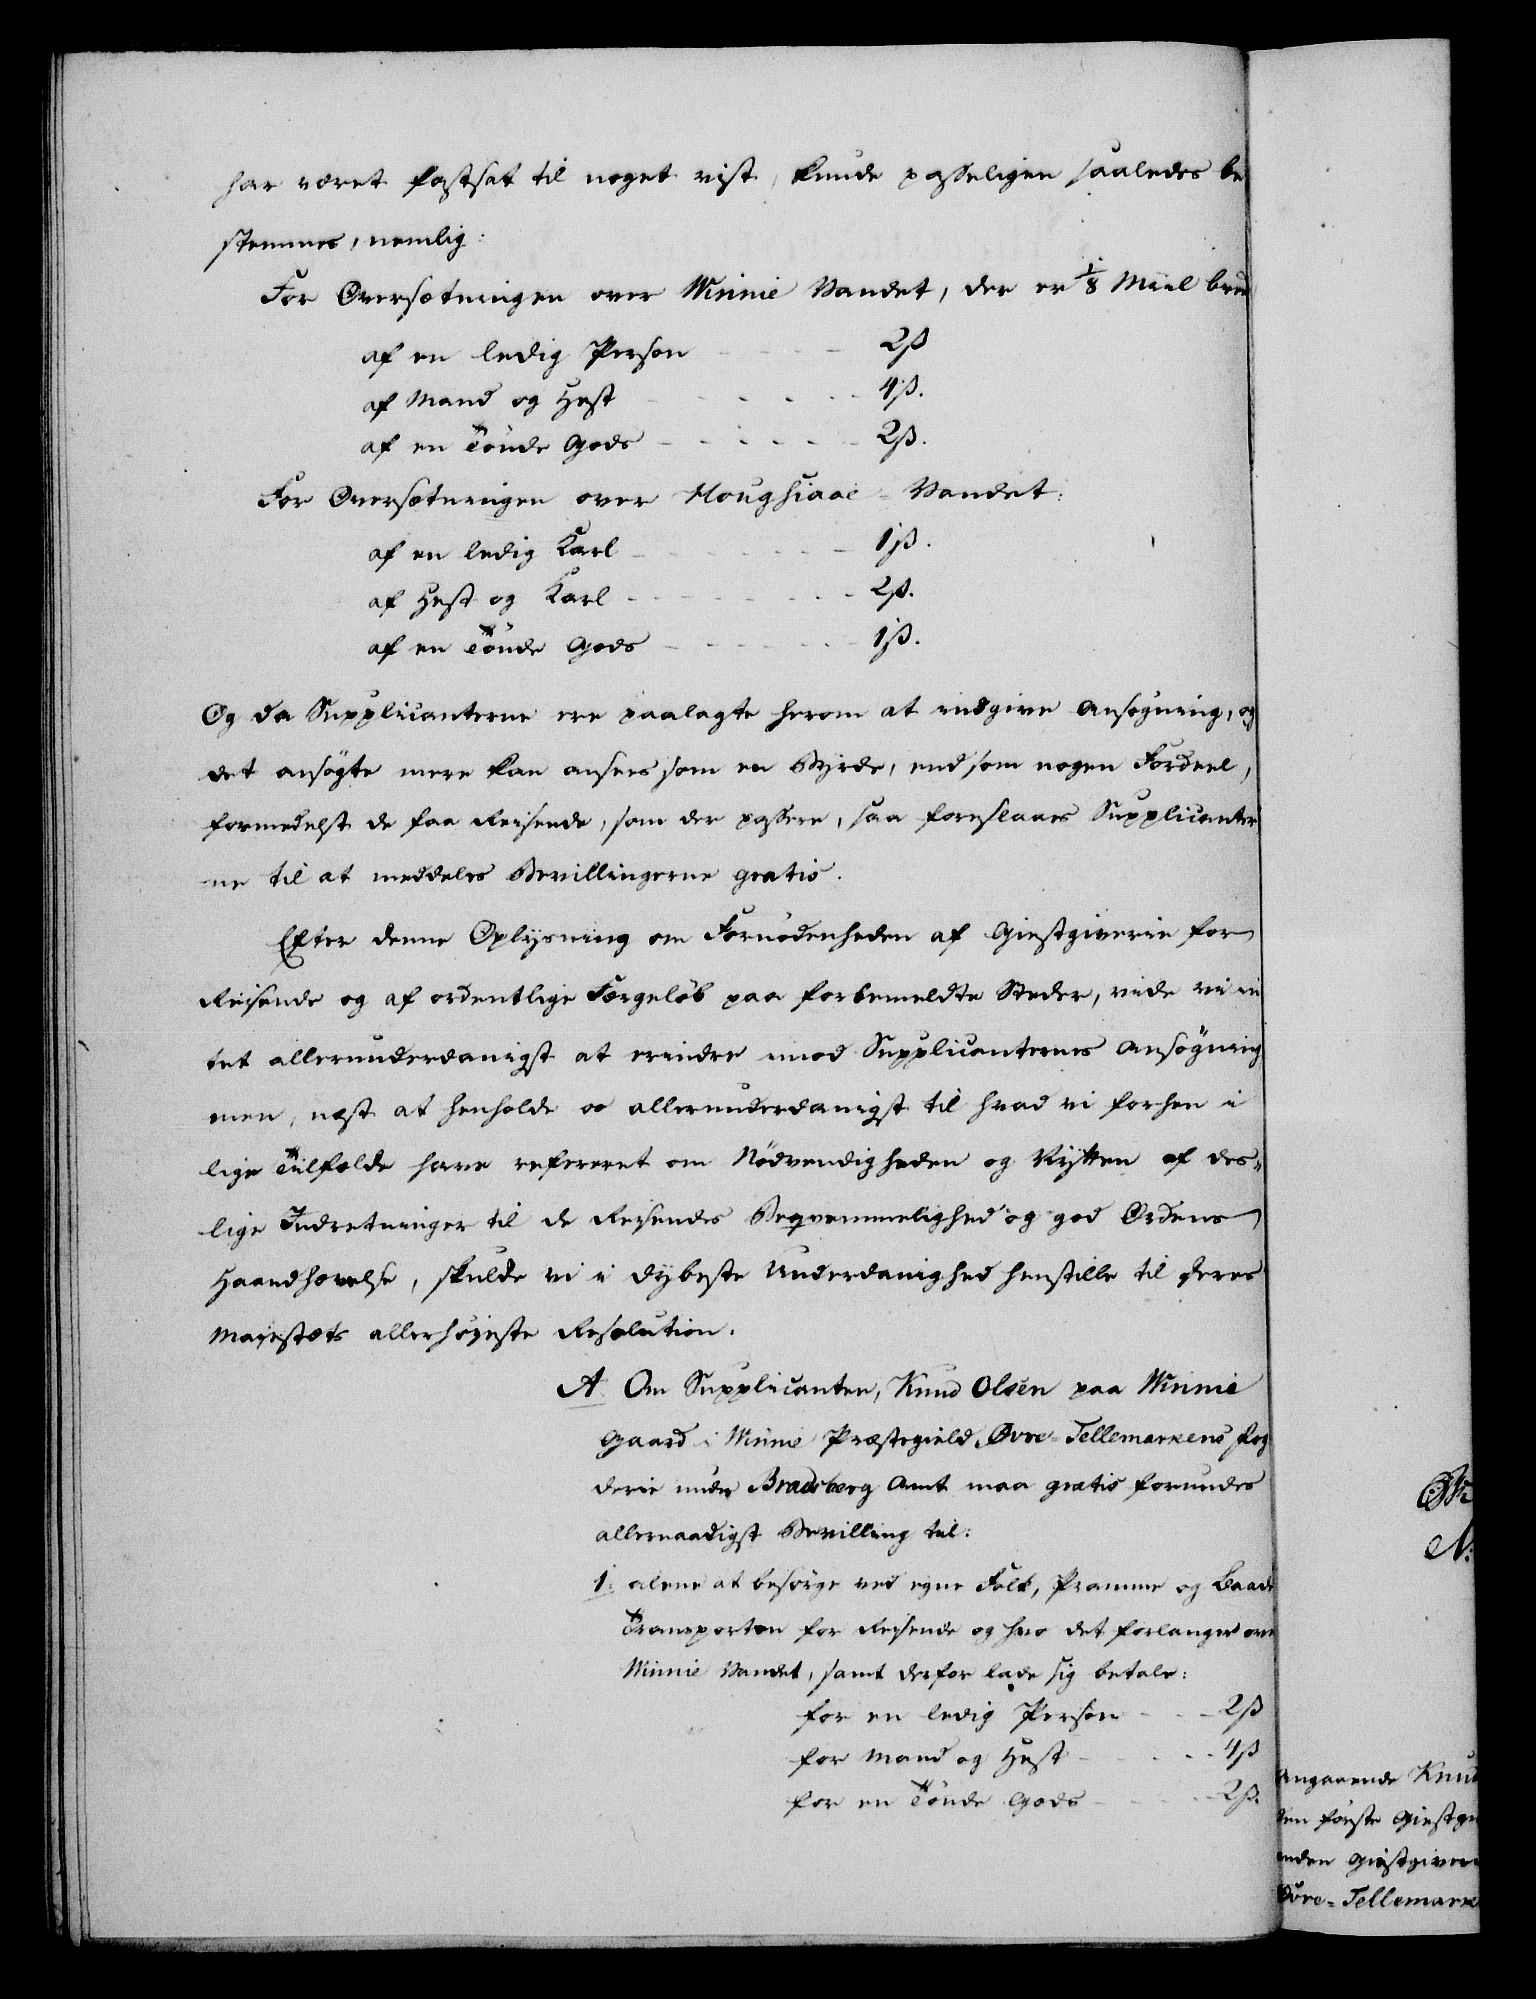 har været fastsat til noget vist, kunde passeligen saaledes be
stemmes, nemlig:
For Oversætningen over Winnie Vandet, der er 1/8 Miil bred
af en ledig Person - - - 2ß
af Mand og Hest - - - 4ß.
af en Tönde Gods - - - 2ß.
For Oversætningen over Hougsiaae-Vandet:
af en ledig Karl - - - 1ß.
af Hest og Karl - - - 2ß.
af en Tönde Gods - - - 1ß.
Og da Supplicanterne ere paalagte herom at indgive Ansøgning, og
det ansögte mere kan ansees som en Byrde, end som nogen Fordeel,
formedelst de faa Reisende, som der passere, saa foreslaaes Supplicanter
ne til at meddeles Bevillingerne gratis.
Efter denne Oplysning om Fornödenheden af Giestgiverie for
Reisende og af ordentlige Færgeløb paa forbemeldte Steder, vide vi in
tet allerunderdanigst at erindre imod Supplicanternes Ansögning
men, næst at henholde os allerunderdanigst til hvad vi forhen i
lige Tilfælde have refereret om Nödvendigheden og Nytten af des-
lige Indretninger til de Reisendes Beqvemmelighed og god Ordens
Haandhævelse, skulde vi i dybeste Underdanighed henstille til Deres
Majestæts allerhöjeste Resolution.
A. Om Supplicanten, Knud Olsen paa Winnie
Gaard i Winie Præstegield, Øvre-Tellemarkens Fog
derie under Bradsberg Amt maa gratis forundes
allernaadigst Bevilling til:
1. alene at besörge ved egne Folk, Pramme og Baade
Transporten for Reisende og hvo det forlanger over
Winnie Vandet, samt derfor lade sig betale:
for en ledig Person - - - 2ß
for Mand og Hest - - - 4ß
for en Tönde Gods - - - 2ß.
Angaaende Knud
den første Giestgi
anden Giestgiver
Øvre-Tellemarke